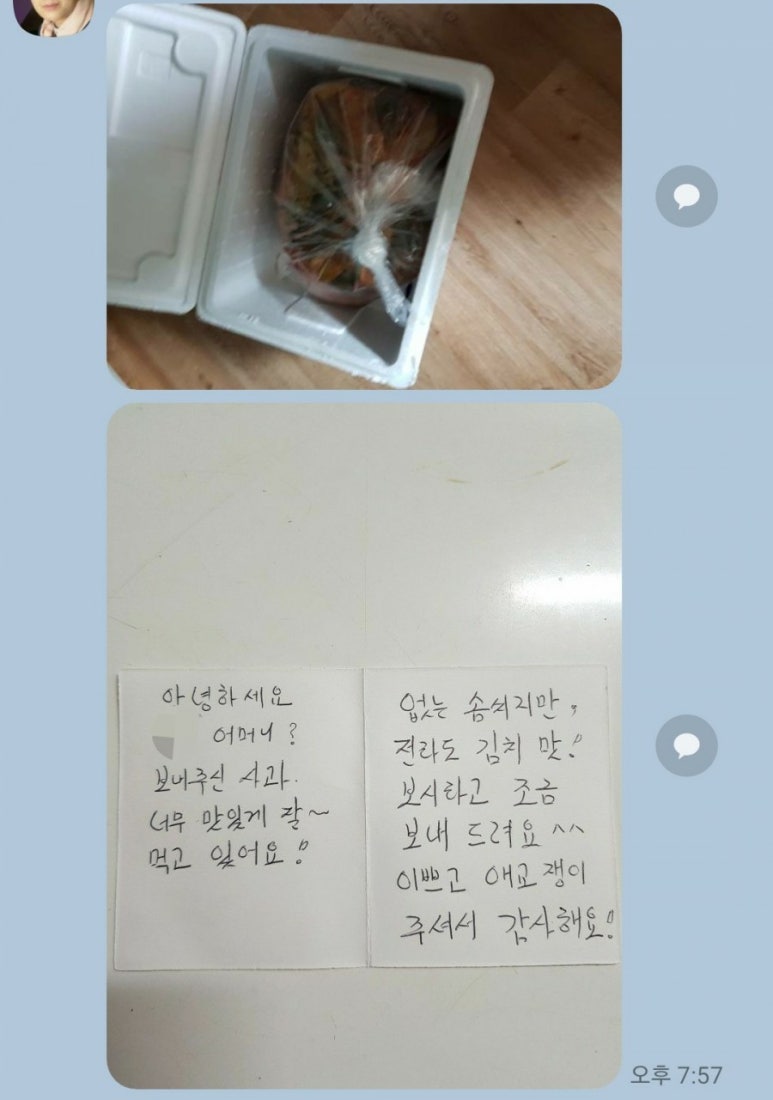 안녕하세요
어머니?
보내주신 사과.
너무 맛있게 잘~
먹고 있어요!
없는 솜씨지만,
전라도 김치 맛!
보시라고 조금
보내 드려요^^
이쁘고 애교쟁이
주셔서 감사해요!
오후 7:57